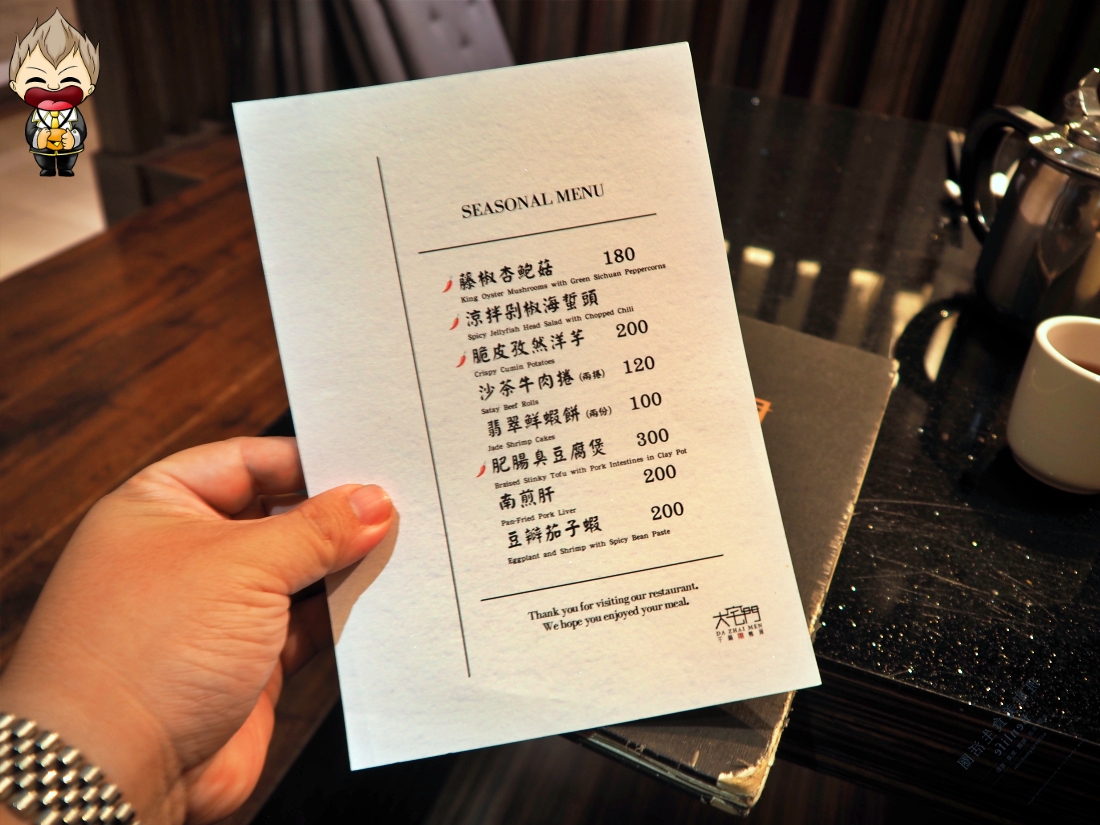 SEASONAL MENU
藤椒杏鮑菇 180
King Oyster Mushrooms with Green Sichuan Peppercorns
涼拌剁椒海蜇頭
Spicy Jellyfish Head Salad with Chopped Chili
脆皮孜然洋芋 200
Crispy Cumin Potatoes
沙茶牛肉捲 (兩捲) 120
Satay Beef Rolls
翡翠鮮蝦餅 (兩份) 100
Jade Shrimp Cakes
肥腸臭豆腐煲 300
Braised Stinky Tofu with Pork Intestines in Clay Pot
南煎肝 200
Pan-Fried Pork Liver
豆瓣茄子蝦 200
Eggplant and Shrimp with Spicy Bean Paste
Thank you for visiting our restaurant.
We hope you enjoyed your meal.
大宅門
DA ZHAI MEN